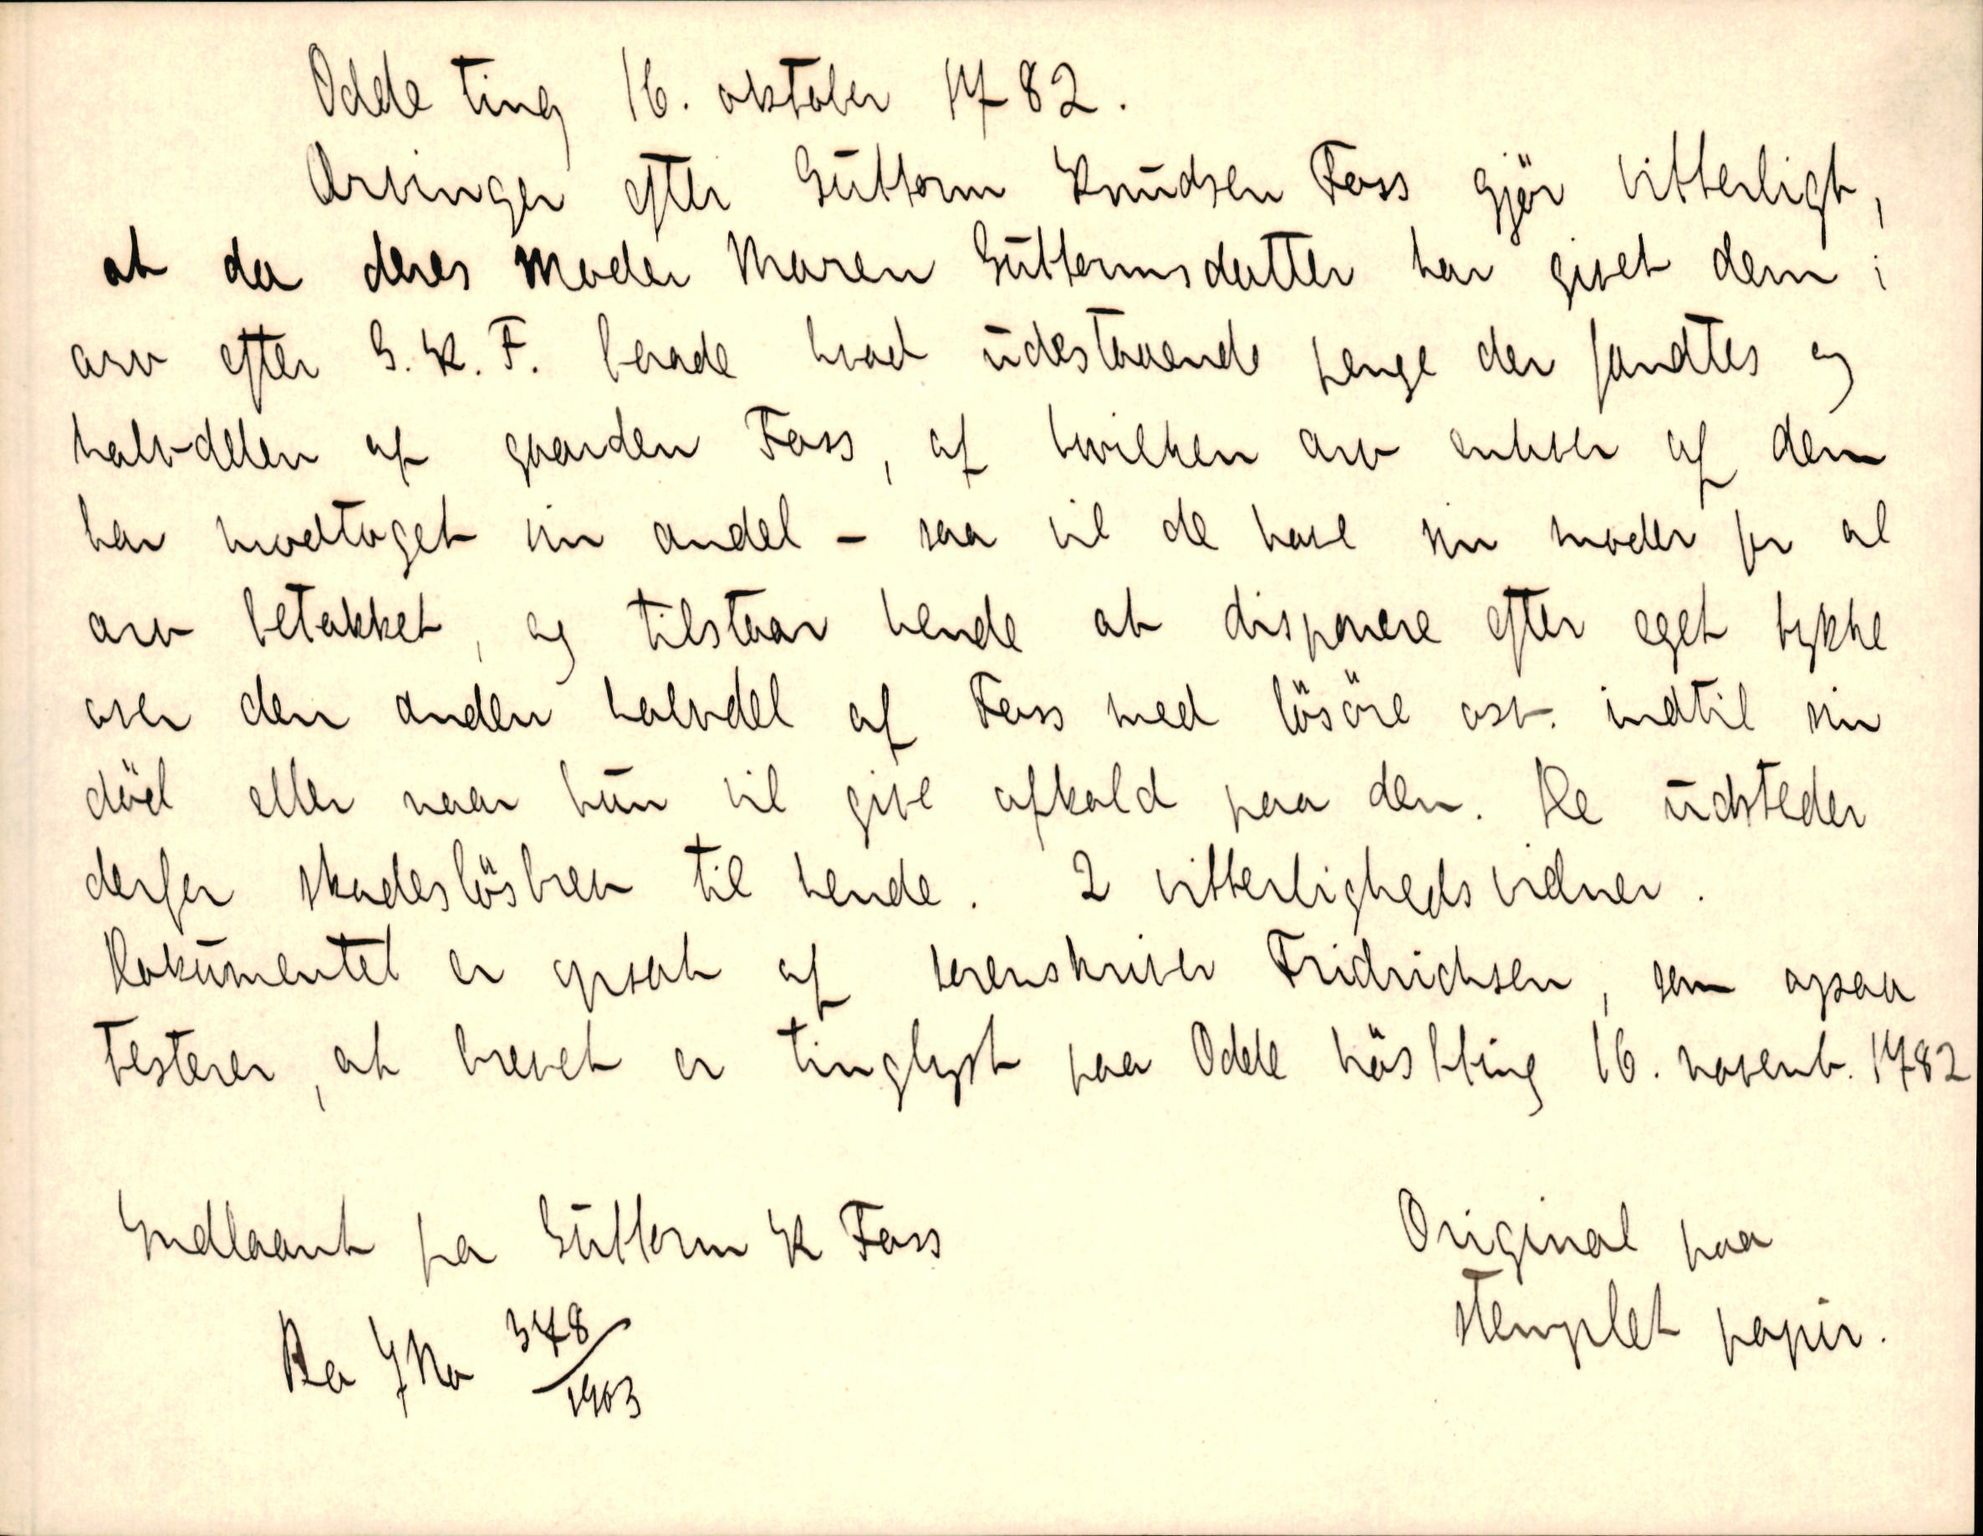 Odde ting 16. oktober 1782.
Arvinger efter Guttorm Knudsen Foss gjör vitterligt,
at da deres moder Maren Guttormsdatter har givet dem i
arv efter G. K. F. baade hvad udestaaende penge der fandtes og
halvdelen af gaarden Foss, af hvilken arv enhver af dem
har modtaget sin andel – saa vil de have sin moder for al
arv betakket, og tilstaar hende at disponere efter eget tykke
over den anden halvdel af Foss med lösöre osv. indtil sin
död eller naar hun vil give afkald paa den. De udsteder
derfor skadeslösbrev til hende. 2 vitterligheds vidner.
Dokumentet er opsat af sorenskriver Fridrichsen, som ogsaa
testerer, at brevet er tinglyst paa Odde höstting 16. novemb. 1782
Indlaant fra Guttorm K Foss
Ra J No 348/1903
Original paa
stemplet papir.